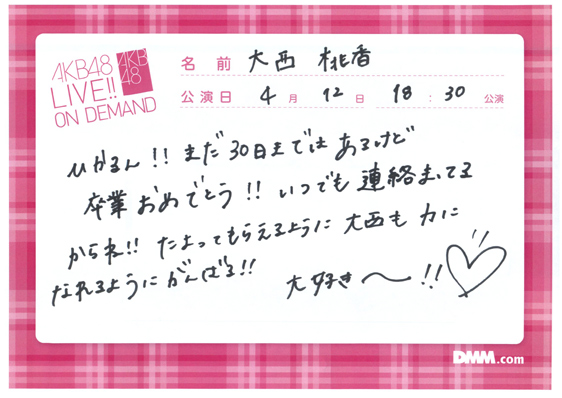 AKB48
LIVE!!
ON DEMAND
AKB
48
名前 大西 桃香
公演日 4月 12日 18:30 公演
ひかるん!! まだ30日まではあるけど
卒業おめでとう!! いつでも連絡まってる
からね!! たよってもらえるように大西も力に
なれるようにがんばる!!
大好き〜!!
DMM.com